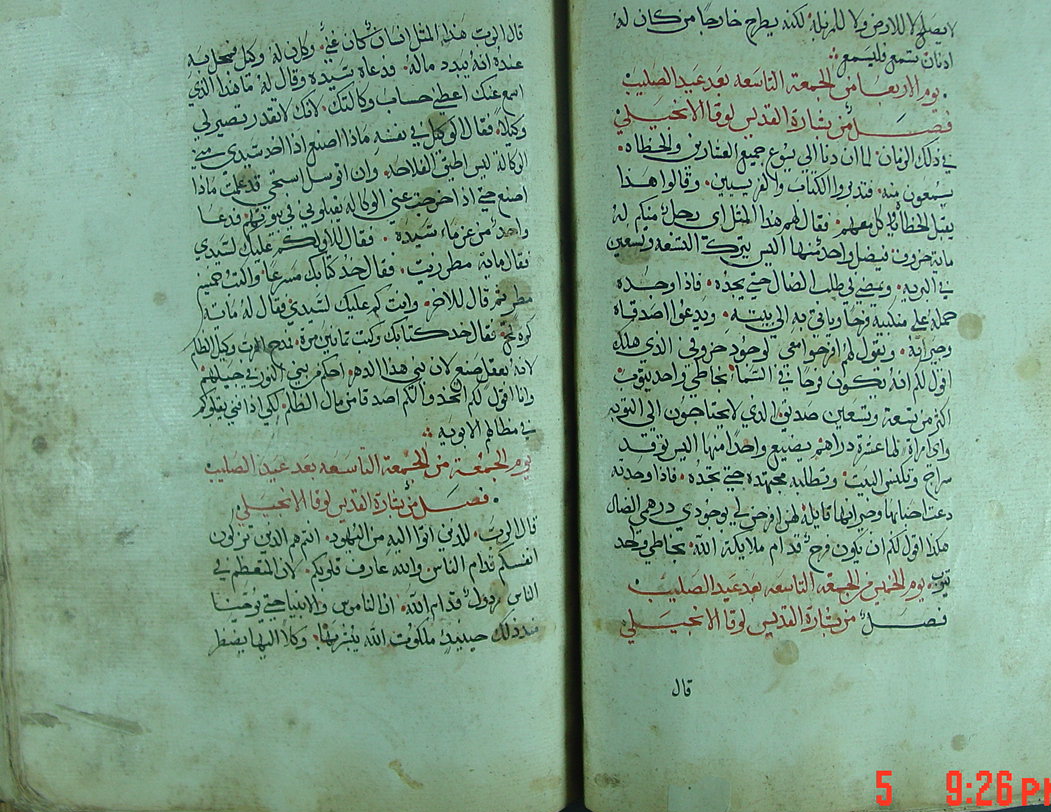 لا يصلح لا للارض ولا للمزبلة لكنه يطرح خارجا من كان له
اذنان تسمع فليسمع
يوم الاربعا من الجمعة التاسعه بعد عيد الصليب
فصل من بشارة القديس لوقا الانجيلي
في ذلك الزمان لما ان دنا الي يسوع جميع العشارين والخطاه
يسمعون منه فتذمروا الكتاب والفريسين وقالوا هذا
يقبل الخطاه وياكل معهم فقال لهم هذا المثل اي رجل منكم له
ماية خروف فيضل واحد منها اليس يترك التسعه وتسعين
في البريه ويمضي في طلب الضال حتي يجده فاذا وجده
حمله علي منكبيه فرحا وياتي به الي بيته ويدعوا اصدقاه
وجيرانه ويقول لهم افرحوا معي لوجود خروفي الذي هلك
اقول لكم انه يكون فرحا في السما بخاطي واحد يتوب
اكثر من تسعة وتسعين صديق الذي لا يحتاجون الي التوبه
واي امراة لها عشرة دراهم يضيع واحدا منها اليس توقد
سراج وتكنس البيت وتطلبه بجهده حتي تجده فاذا وجدته
دعت احبابها وجيرانها قايلة لهن افرحن لي بوجودي درهمي الضال
هكذا اقول لكم ان يكون فرح قدام ملايكة الله بخاطي واحد
يتوب يوم الخميس من الجمعه التاسعه بعد عيد الصليب
فصل من بشارة القديس لوقا الانجيلي
قال
قال الرب هذا المثل انسان كان غني وكان له وكيل فمحل به
عنده انه يبدد ماله فدعاه سيده وقال له ما هذا الذي
اسمع عنك اعطي حساب وكالتك لانك لا تقدر تصير لي
وكيلا فقال الوكيل في نفسه ماذا اصنع اذا اخد سيدي مني
الوكاله ليس اطيق الفلاحه وان اتوسل استحي قد علمت ماذا
اصنع حتي اذا اخرجت عني الوكاله يقبلوني في بيوتهم فدعا
واحد من غرماء سيده فقال للاول كم عليك لسيدي
فقال ماية مطر زيت فقال خد كتابك مسرعا واكتب خمسين
مطر ثم قال للاخر وانت كم عليك لسيدي فقال له ماية
كر قمح فقال خد كتابك وكتب ثمانين فمدح الرب وكيل الظلم
لانه بعقل صنع لان بني هذا الدهر احكم من بني النور في جيلهم
وانا اقول لكم اتخدوا لكم اصدقا من مال الظلم لكي اذا فني يقبلوكم
في مظالهم الابديه
يوم الجمعة من الجمعة التاسعه بعد عيد الصليب
فصل من بشارة القديس لوقا الانجيلي
قال الرب للذين اتوا اليه من اليهود انتم هم الذين تزكون
انفسكم قدام الناس والله عارف قلوبكم لان المتعظم في
الناس مرذول قدام الله ان الناموس والانبيا حتي يوحنا
منذ ذلك حينيذ ملكوت الله يبشر بها وكلا اليها يضطر
5 9:26 PM